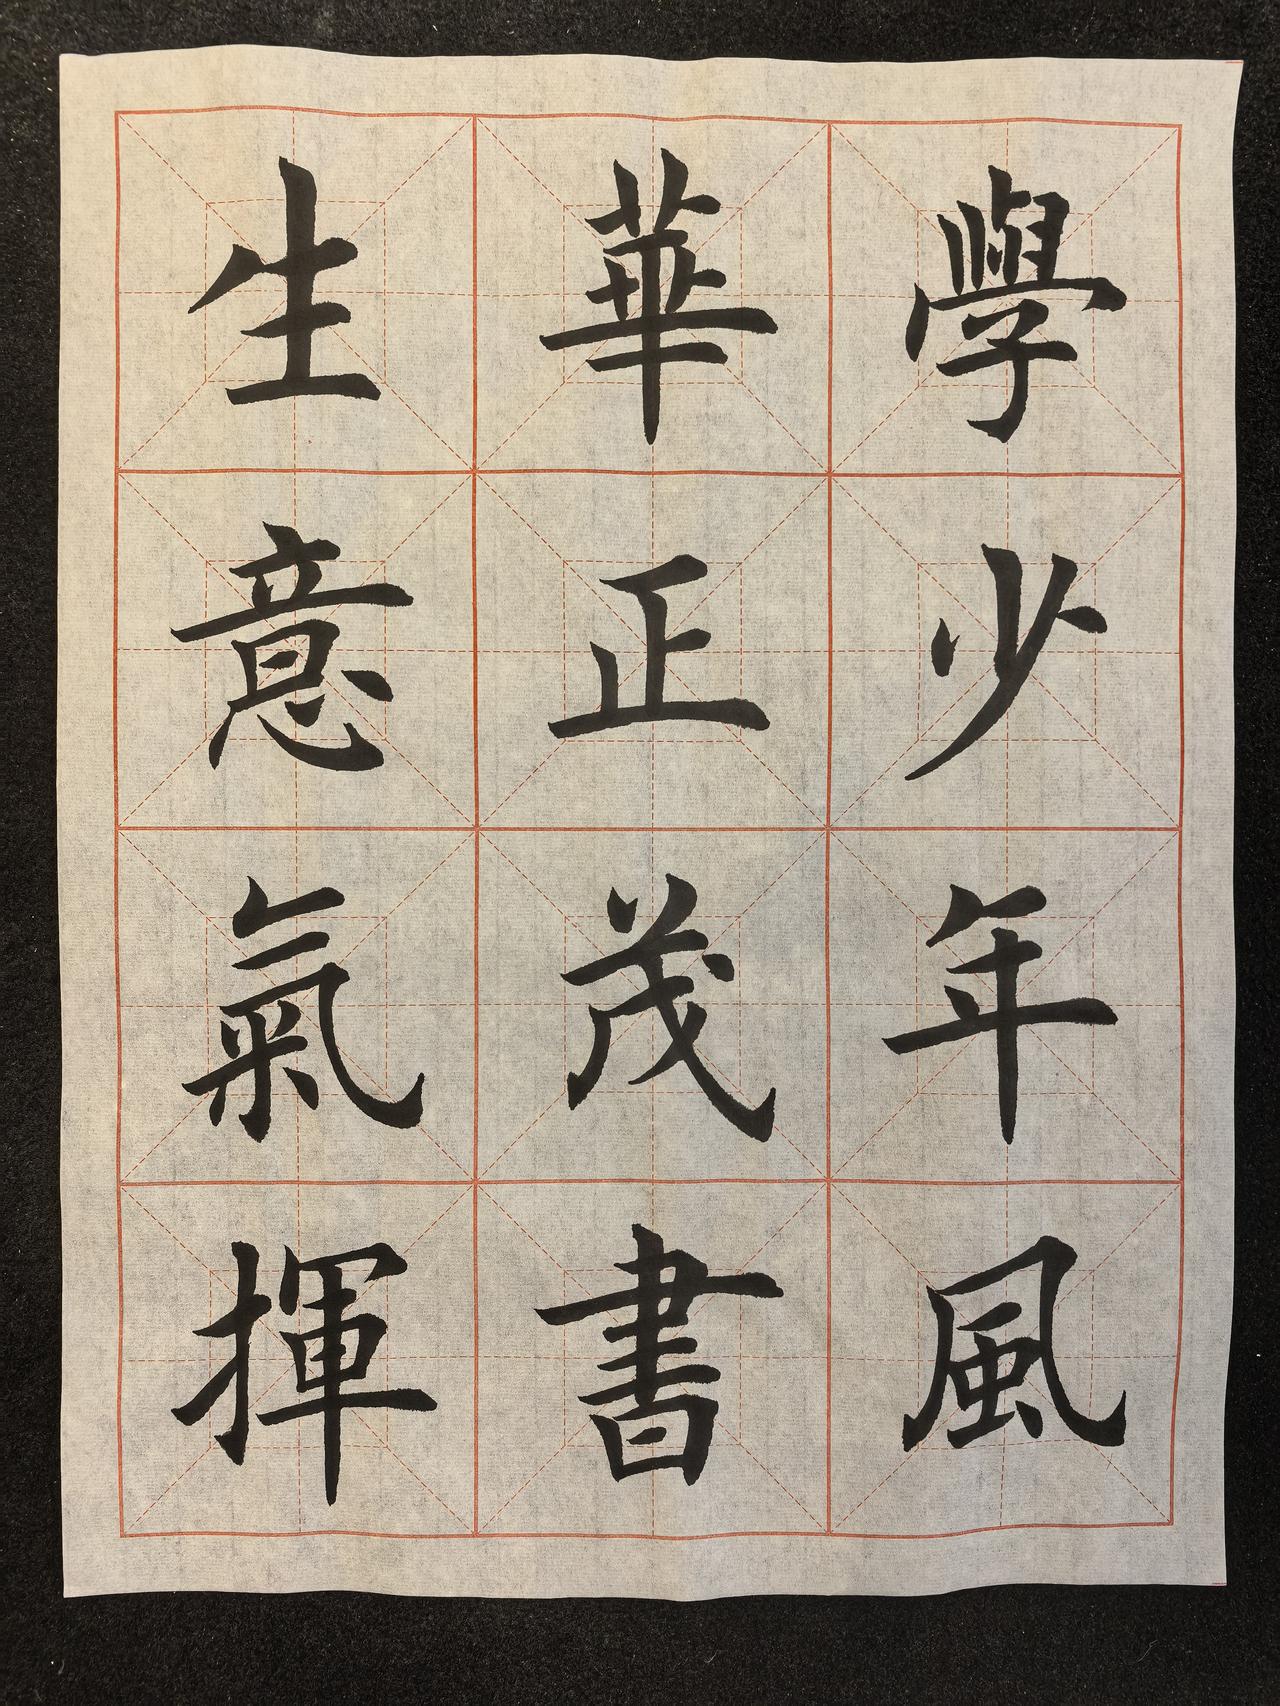 學少年風
華正茂書
生意氣揮